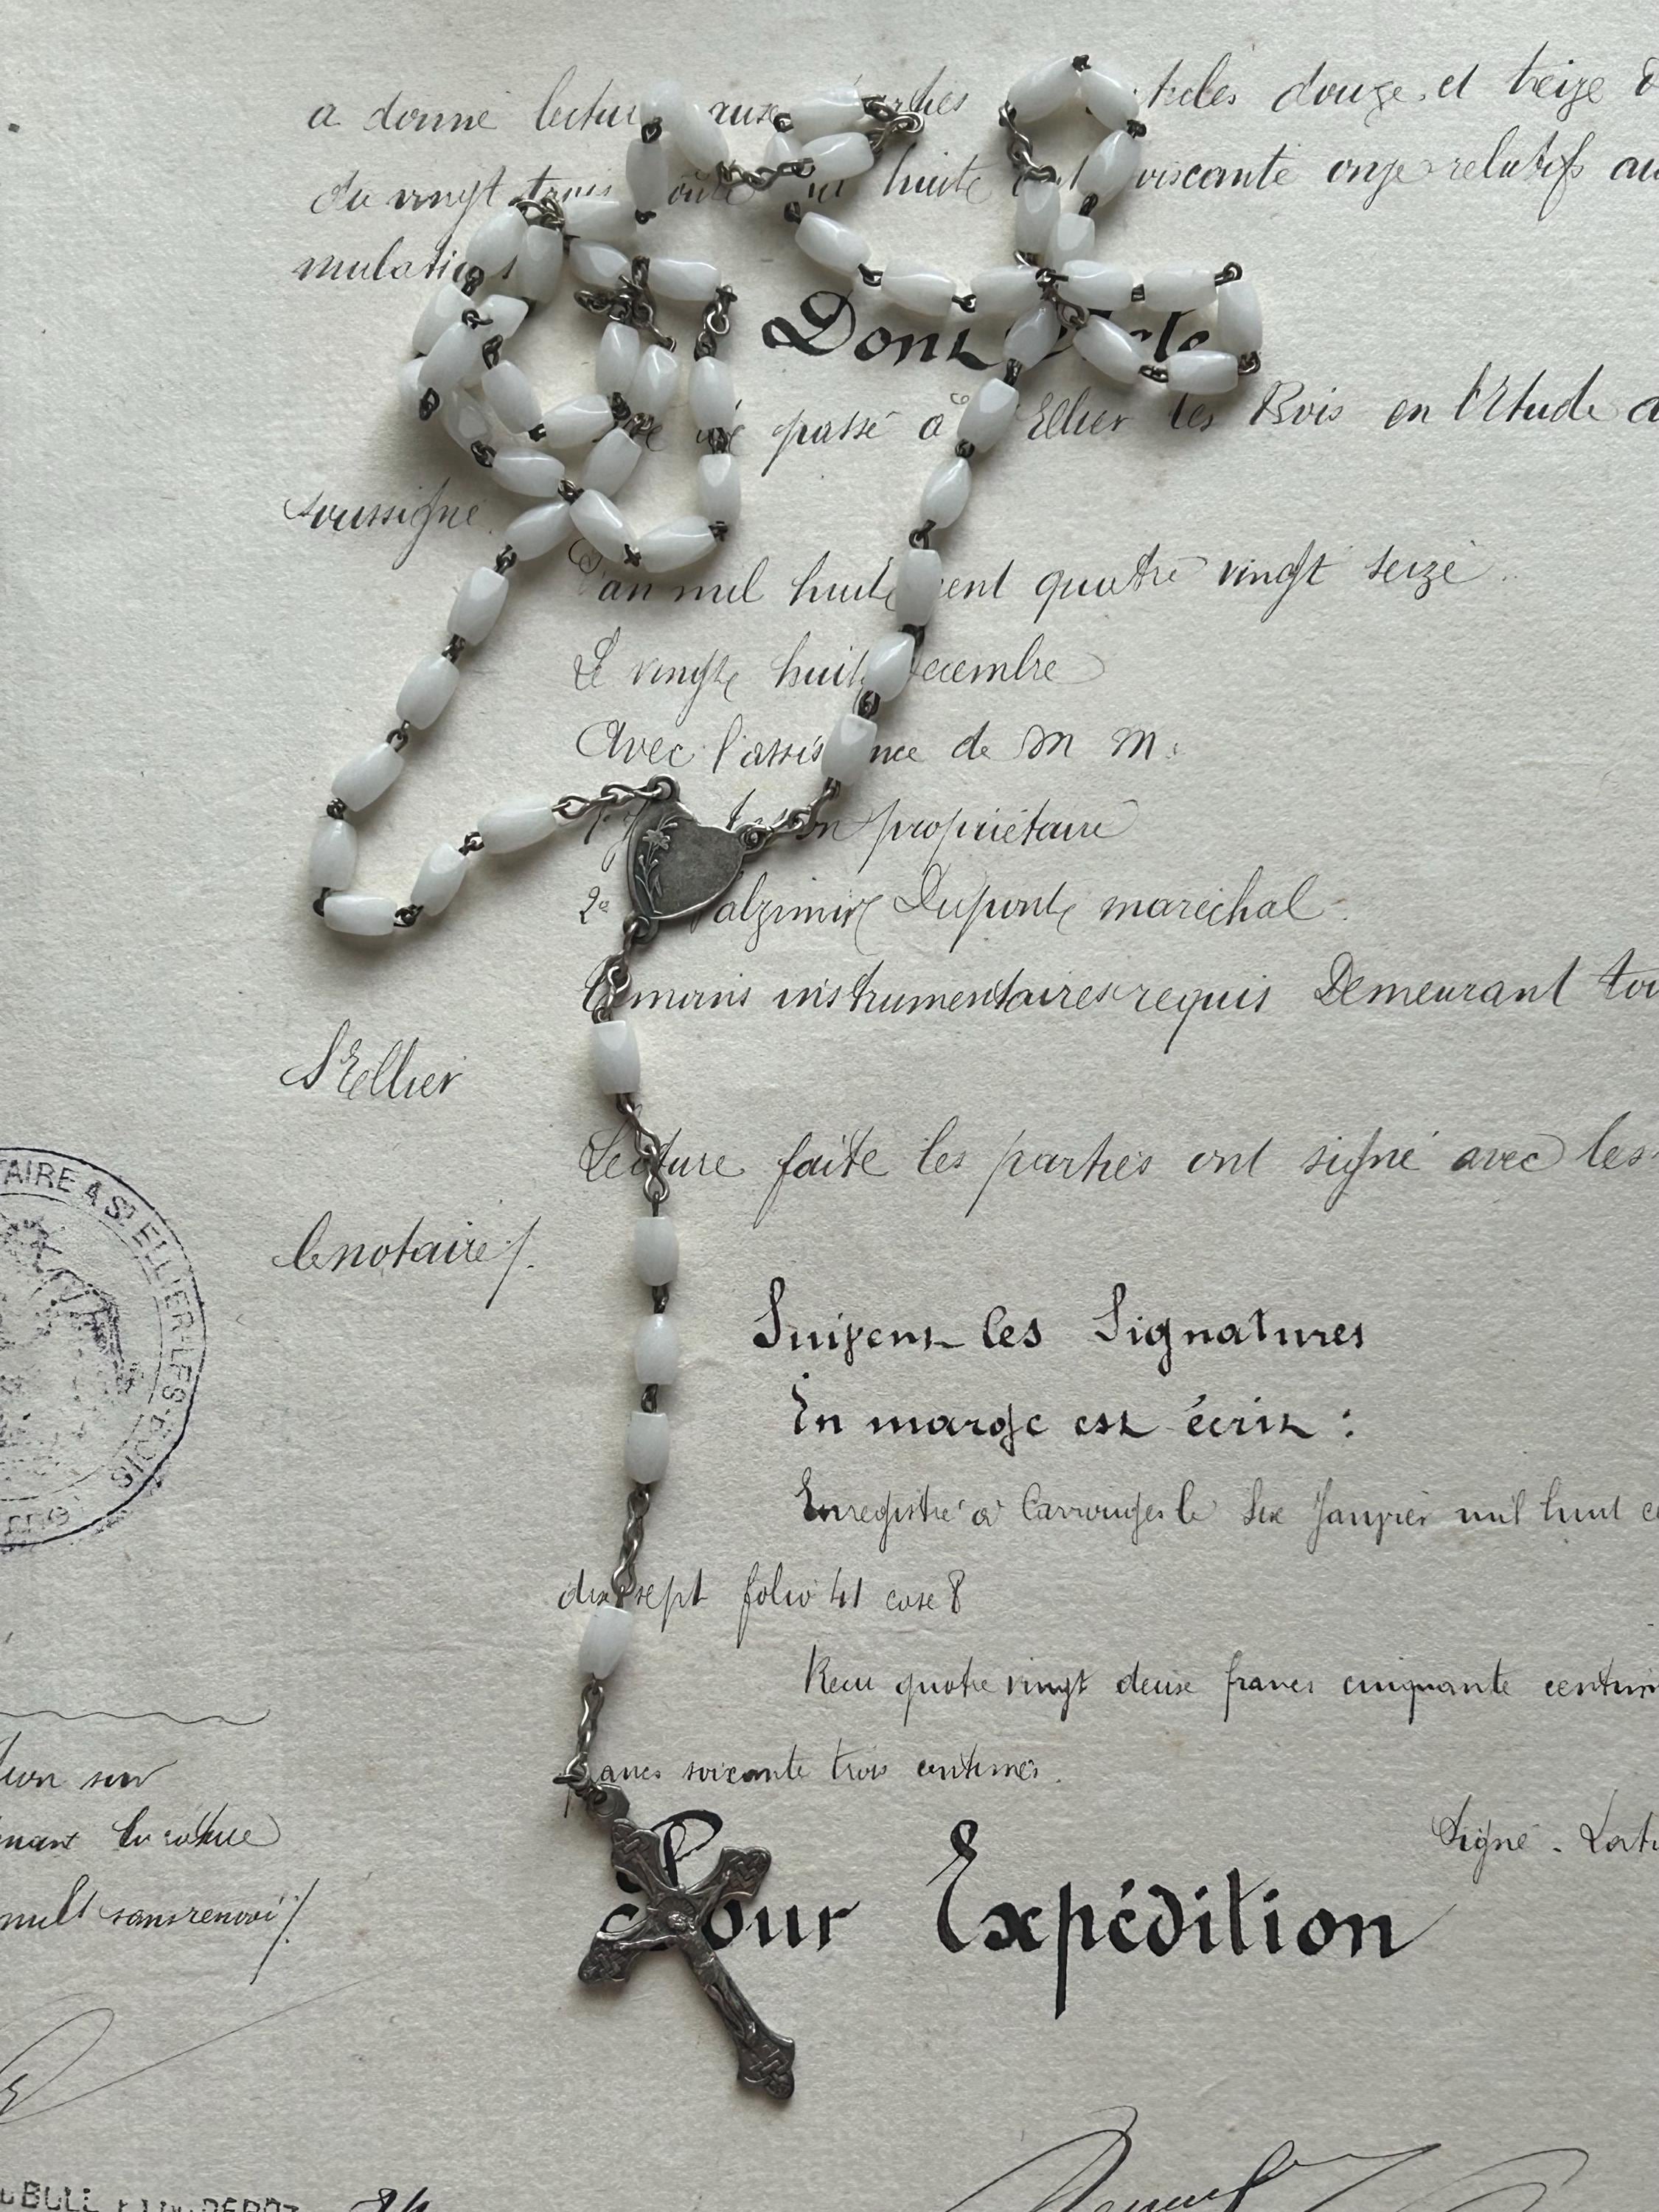 a donné lectur aux arties ticles douze et treize d
du vingt trois août huit oixante onze relatifs au
mutations
Dont
passé à Ellier les Bois en l'Etude d
soussigné
L'an mil huit cent quatre vingt seize
Le vingt huit Décembre
Avec l'assis nce de M M.
on propriétaire
2° Dupont maréchal
Témoins instrumentaires requis Demeurant tou
St Ellier
Lecture faite les parties ont signé avec les
le notaire /.
Suivent les Signatures
En marge est écrit :
Enregistré à Carrouges le Six Janvier mil huit c
dix sept folio 41 case 8
Recu quatre vingt deux francs cinquante centim
ancs soixante trois centimes.
Signé.
Pour Expédition
TAIRE A ST ELLIER-LES-BOIS
tion sur
nant
nuls sans renvoi /.